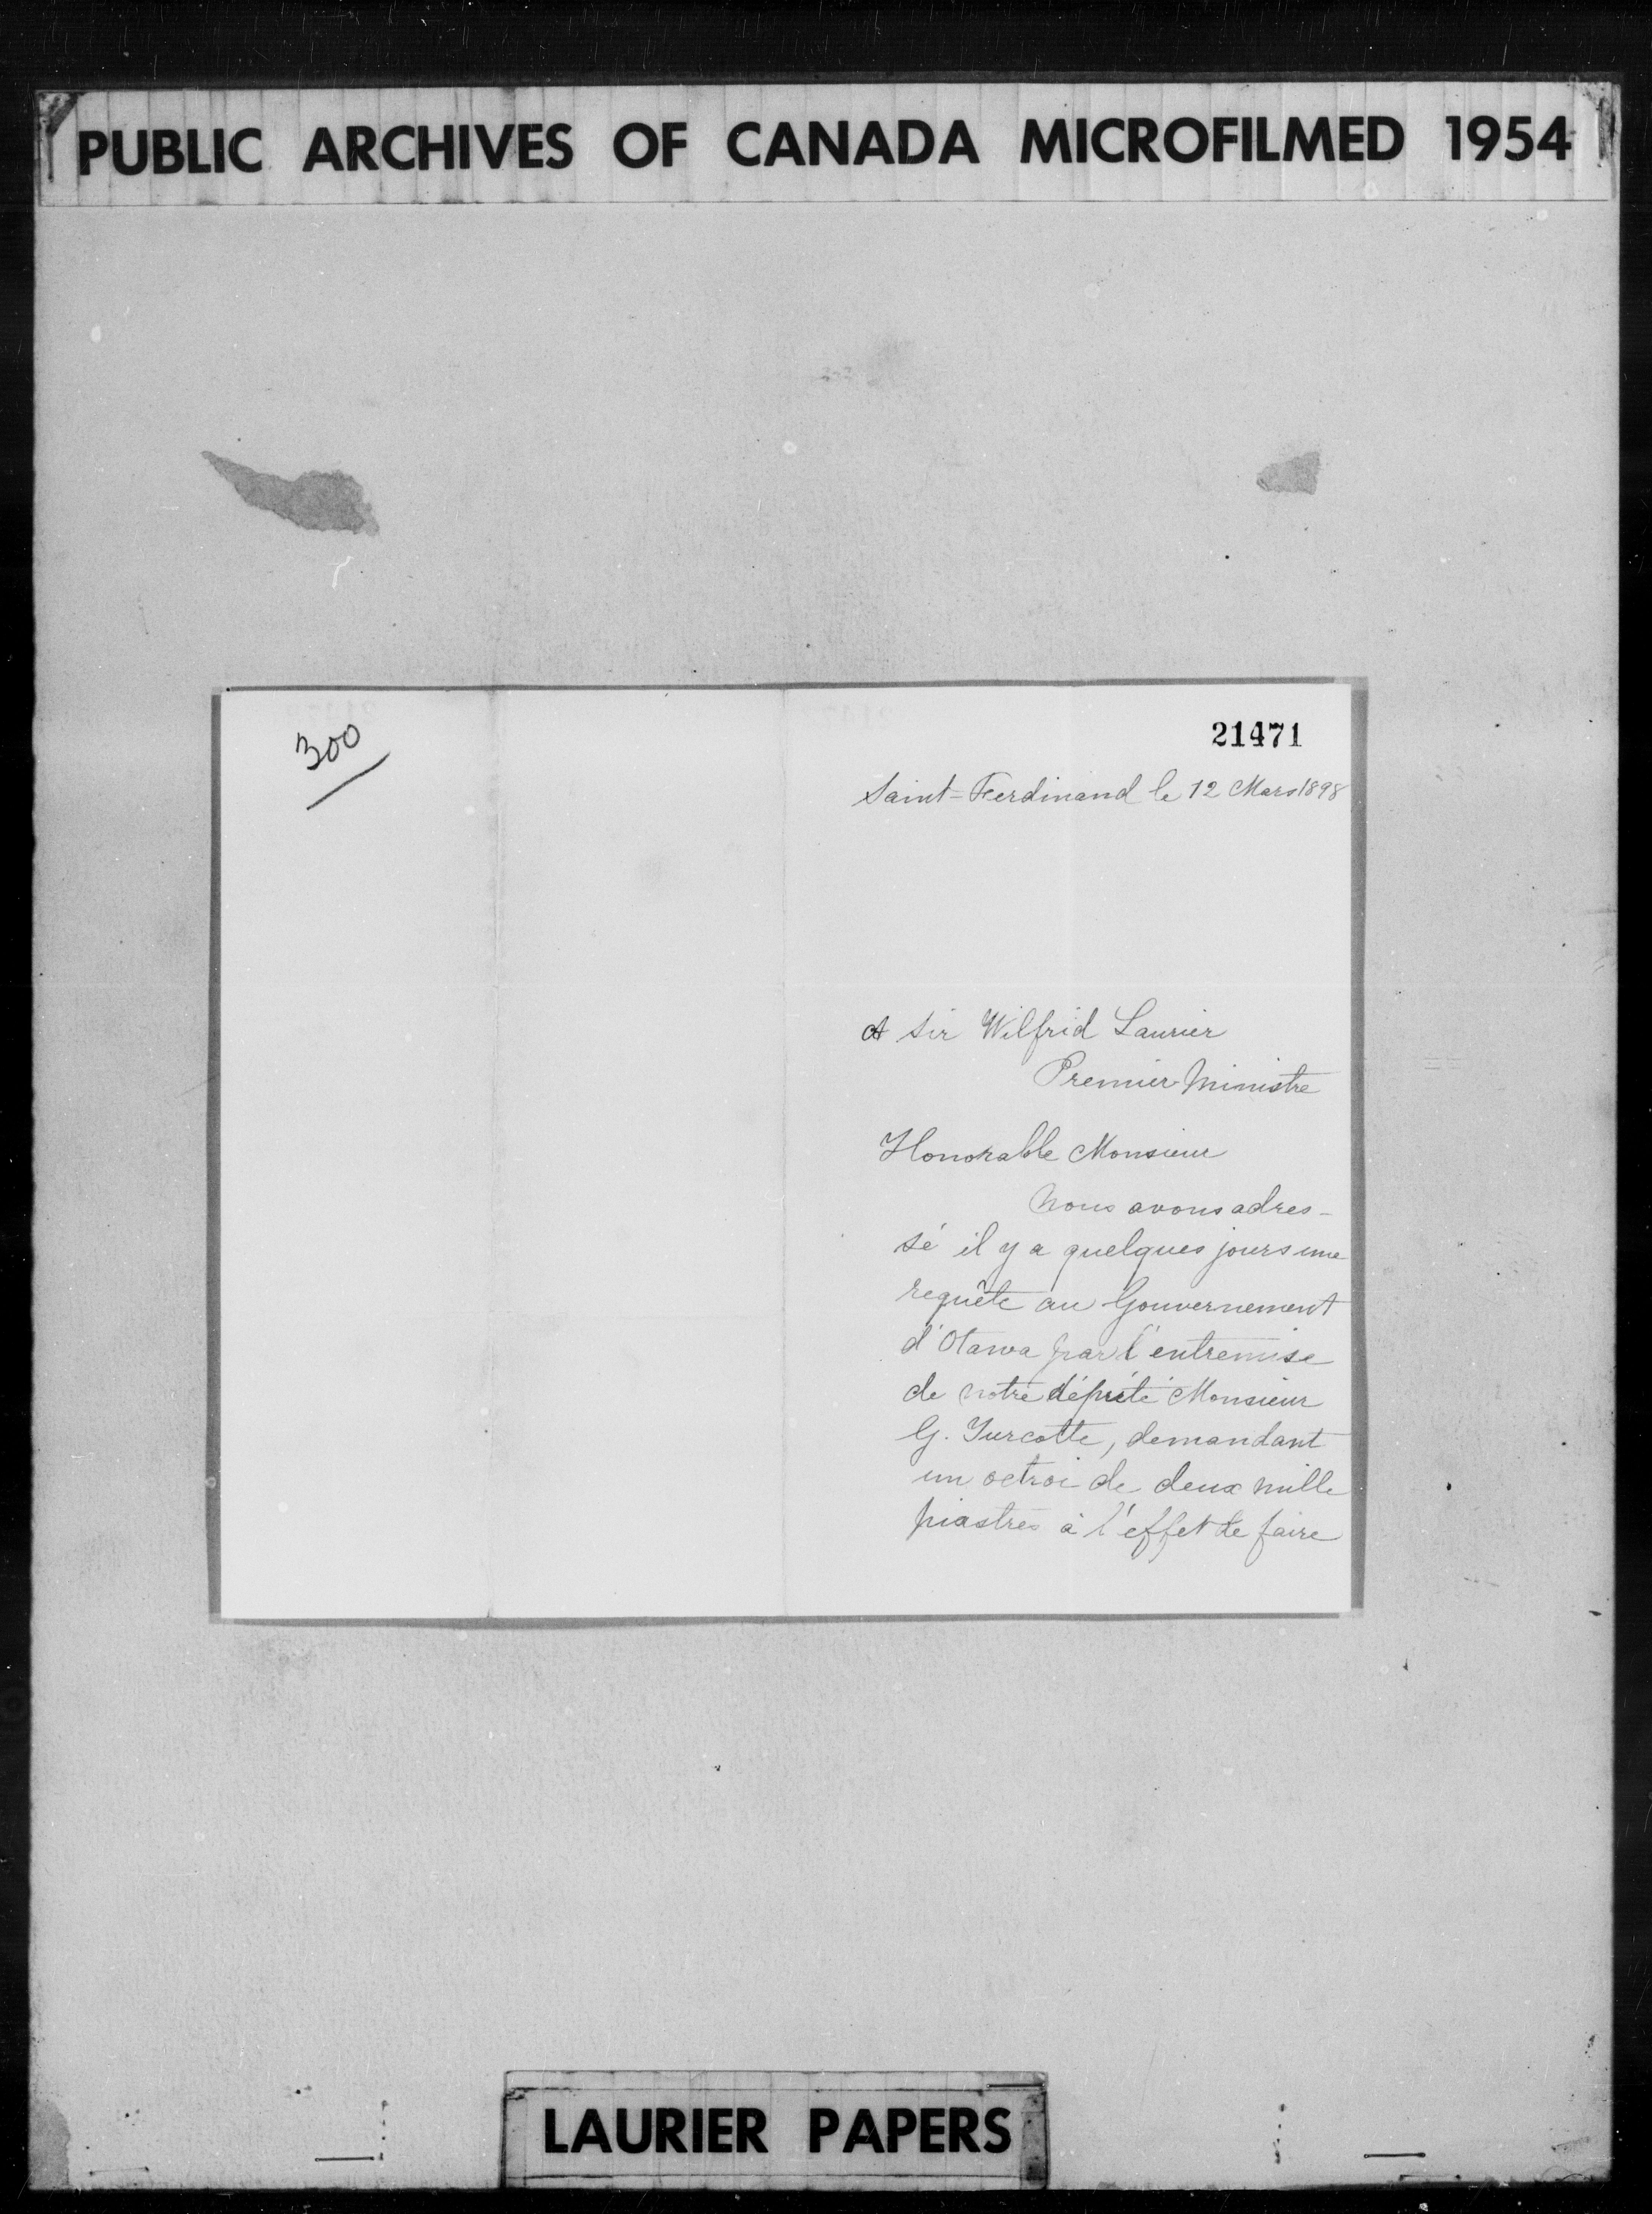 PUBLIC ARCHIVES OF CANADA MICROFILMED 1954
300
21471
Saint-Ferdinand le 12 Mars 1898
A Sir Wilfrid Laurier
Premier Ministre
Honorable Monsieur
Nous avons adres-
sé il y a quelques jours une
requête au Gouvernement
d'Otawa par l'entremise
de notre député Monsieur
G. Turcotte, demandant
un octroi de deux mille
piastres à l'effet de faire
LAURIER PAPERS